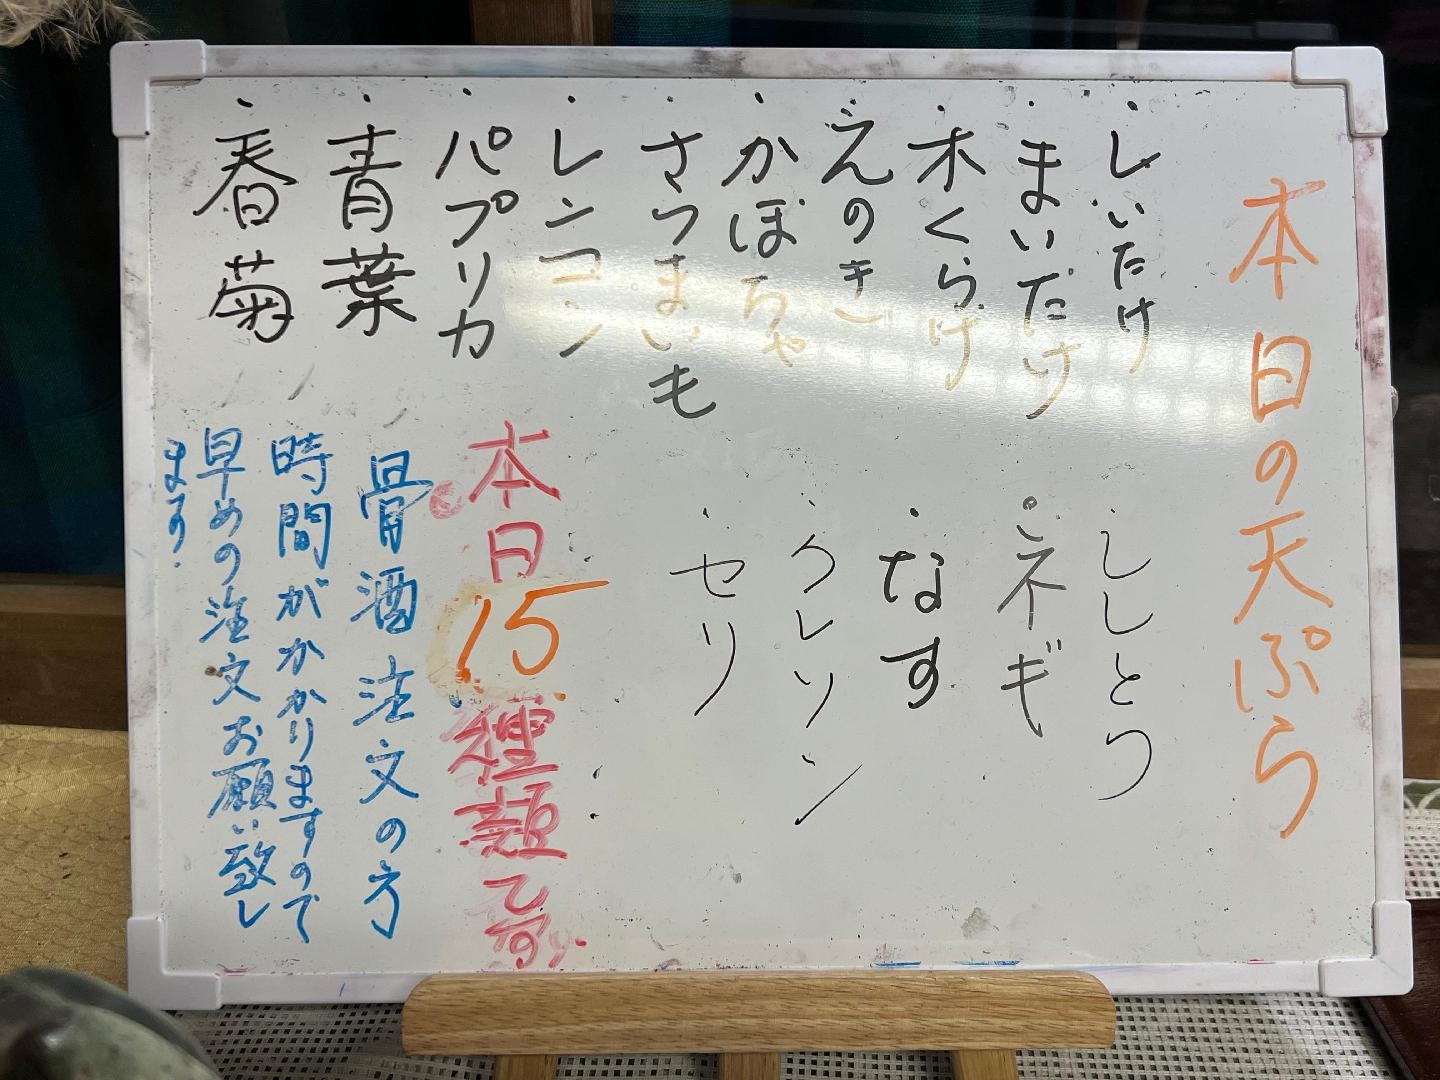 本日の天ぷら
・しいたけ
・まいたけ
・木くらけ
・えのき
・かぼちゃ
・さつまいも
・レンコン
・パプリカ
・青葉
・春菊
・ししとう
・ネギ
・なす
・クレソン
・セリ
本日15種類です
骨酒注文の方
時間がかかりますので
早めの注文お願い致し
ます.